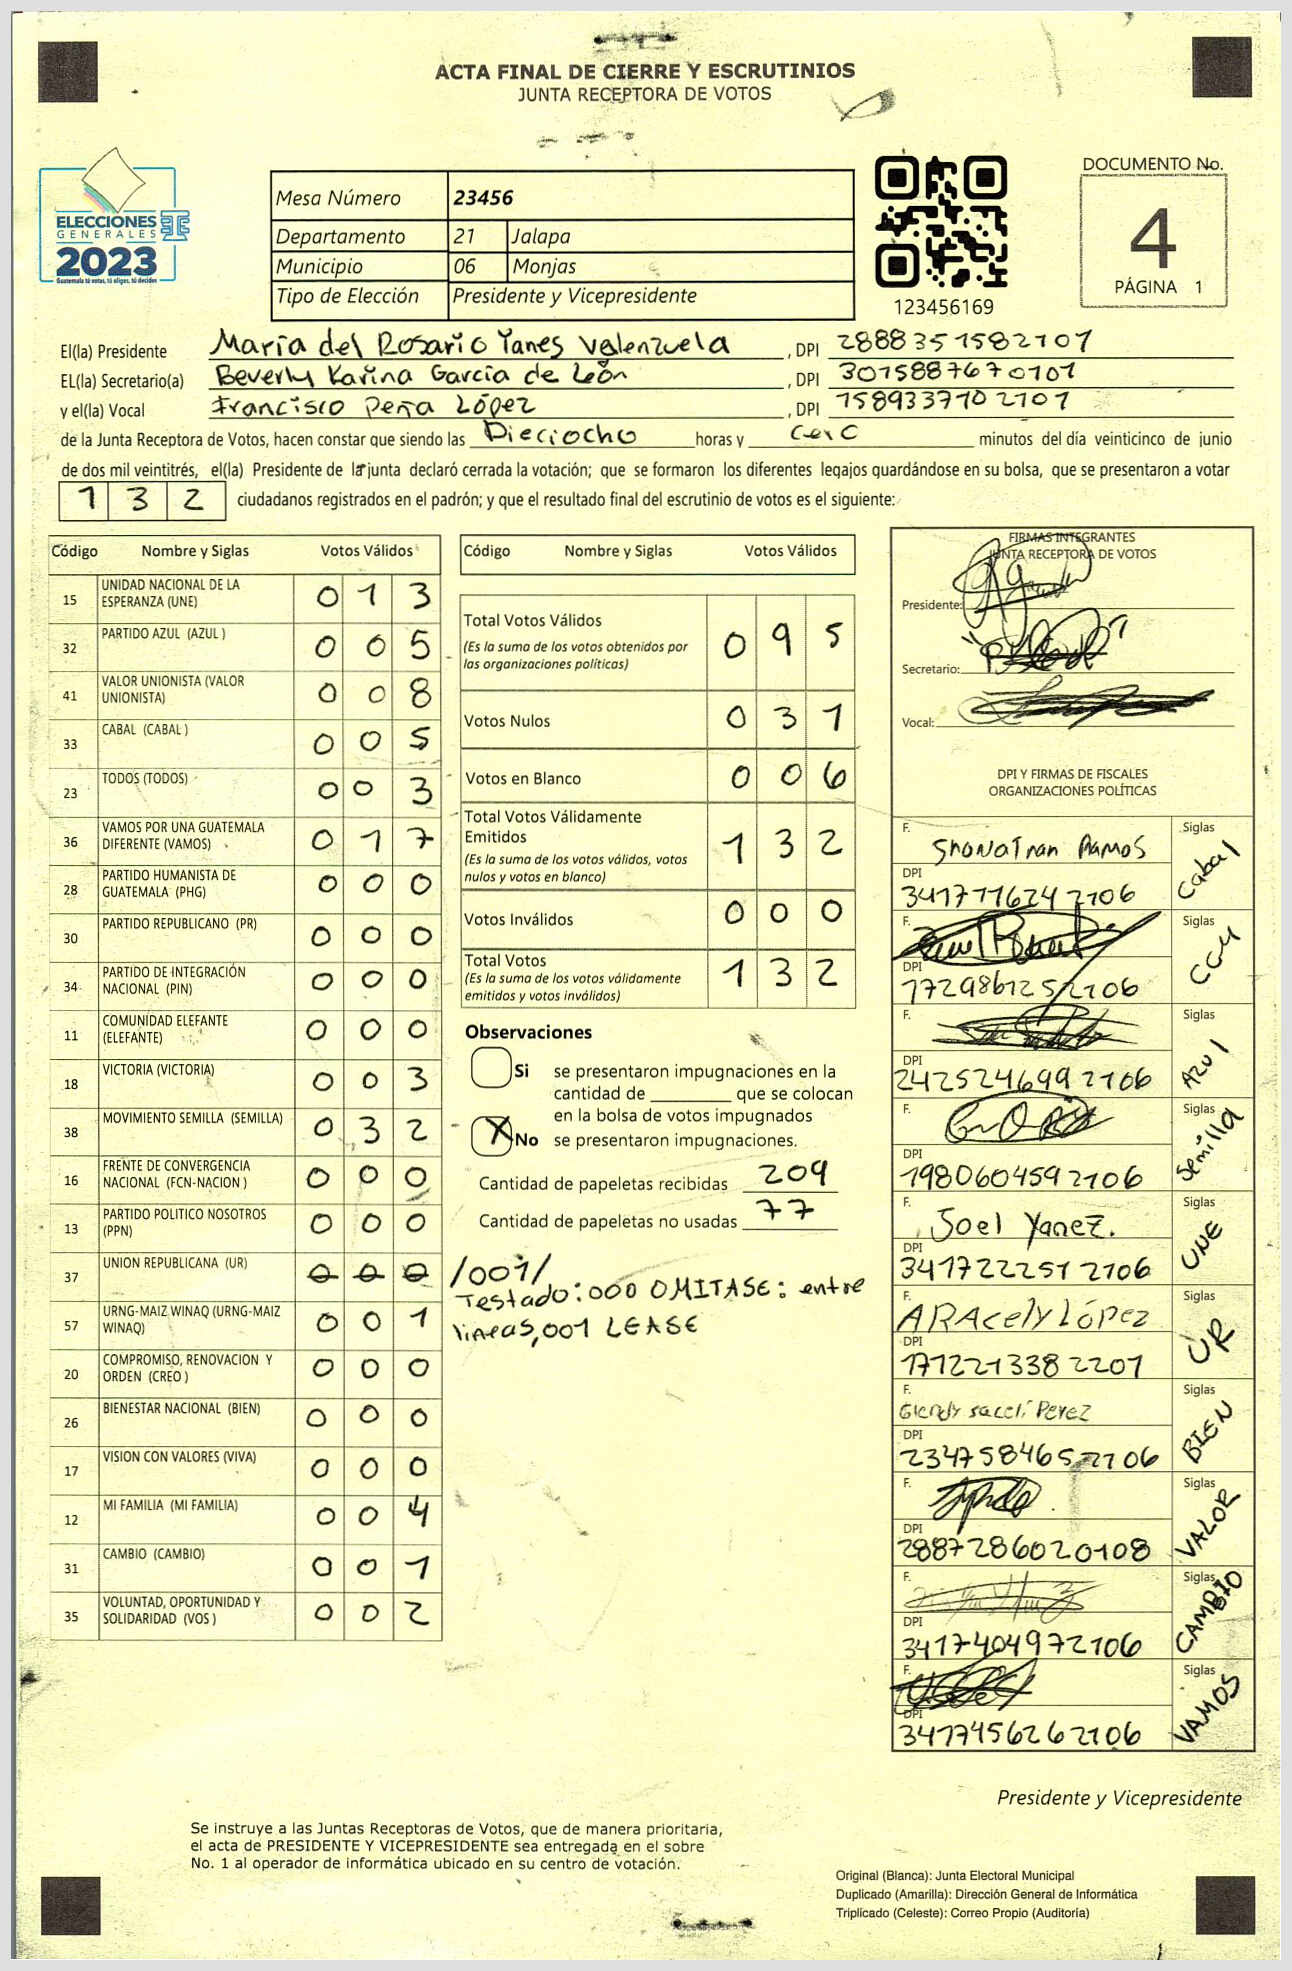 ACTA FINAL DE CIERRE Y ESCRUTINIOS
JUNTA RECEPTORA DE VOTOS
ELECCIONES
GENERALES
2023
Guatemala tú votas, tú eliges, tú decides
Mesa Número 23456
Departamento 21 Jalapa
Municipio 06 Monjas
Tipo de Elección Presidente y Vicepresidente
123456169
DOCUMENTO No.
4
PÁGINA 1
El(la) Presidente María del Rosario Yanes Valenzuela, DPI 2888351582101
EL(la) Secretario(a) Beverly Karina García de León, DPI 3015887670101
y el(la) Vocal Francisco Peña López, DPI 1589337102101
de la Junta Receptora de Votos, hacen constar que siendo las Dieciocho horas y cero minutos del día veinticinco de junio
de dos mil veintitrés, el(la) Presidente de la junta declaró cerrada la votación; que se formaron los diferentes legajos guardándose en su bolsa, que se presentaron a votar
132 ciudadanos registrados en el padrón; y que el resultado final del escrutinio de votos es el siguiente:
Código Nombre y Siglas Votos Válidos
15 UNIDAD NACIONAL DE LA ESPERANZA (UNE) 013
32 PARTIDO AZUL (AZUL ) 005
41 VALOR UNIONISTA (VALOR UNIONISTA) 008
33 CABAL (CABAL ) 005
23 TODOS (TODOS) 003
36 VAMOS POR UNA GUATEMALA DIFERENTE (VAMOS) 017
28 PARTIDO HUMANISTA DE GUATEMALA (PHG) 000
30 PARTIDO REPUBLICANO (PR) 000
34 PARTIDO DE INTEGRACIÓN NACIONAL (PIN) 000
11 COMUNIDAD ELEFANTE (ELEFANTE) 000
18 VICTORIA (VICTORIA) 003
38 MOVIMIENTO SEMILLA (SEMILLA) 032
16 FRENTE DE CONVERGENCIA NACIONAL (FCN-NACION ) 000
13 PARTIDO POLITICO NOSOTROS (PPN) 000
37 UNION REPUBLICANA (UR) 000 /001/
57 URNG-MAIZ WINAQ (URNG-MAIZ WINAQ) 001
20 COMPROMISO, RENOVACION Y ORDEN (CREO ) 000
26 BIENESTAR NACIONAL (BIEN) 000
17 VISION CON VALORES (VIVA) 000
12 MI FAMILIA (MI FAMILIA) 004
31 CAMBIO (CAMBIO) 001
35 VOLUNTAD, OPORTUNIDAD Y SOLIDARIDAD (VOS ) 002
Código Nombre y Siglas Votos Válidos
Total Votos Válidos 095
(Es la suma de los votos obtenidos por
las organizaciones políticas)
Votos Nulos 031
Votos en Blanco 006
Total Votos Válidamente
Emitidos 132
(Es la suma de los votos válidos, votos
nulos y votos en blanco)
Votos Inválidos 000
Total Votos 132
(Es la suma de los votos válidamente
emitidos y votos inválidos)
Observaciones
Si se presentaron impugnaciones en la
cantidad de ________ que se colocan
en la bolsa de votos impugnados
X No se presentaron impugnaciones.
Cantidad de papeletas recibidas 209
Cantidad de papeletas no usadas 77
Testado: 000 OMITASE: entre
lineas, 001 LEASE
FIRMAS INTEGRANTES
JUNTA RECEPTORA DE VOTOS
Presidente:
Secretario:
Vocal:
DPI Y FIRMAS DE FISCALES
ORGANIZACIONES POLÍTICAS
F. Ramos Siglas Cabal
DPI 3417716242106
F. Siglas CCM
DPI 1729861252106
F. Siglas Azul
DPI 2425246992106
F. Siglas Semilla
DPI 1980604592106
F. Joel Yanez. Siglas UNE
DPI 3417222512106
F. ARAcely López Siglas UR
DPI 1712213382201
F. Perez Siglas BIEN
DPI 2347584652106
F. Siglas VALOR
DPI 2887286020108
F. Siglas CAMBIO
DPI 3417404972106
F. Siglas VAMOS
DPI 3417456262106
Presidente y Vicepresidente
Se instruye a las Juntas Receptoras de Votos, que de manera prioritaria,
el acta de PRESIDENTE Y VICEPRESIDENTE sea entregada en el sobre
No. 1 al operador de informática ubicado en su centro de votación.
Original (Blanca): Junta Electoral Municipal
Duplicado (Amarilla): Dirección General de Informática
Triplicado (Celeste): Correo Propio (Auditoría)